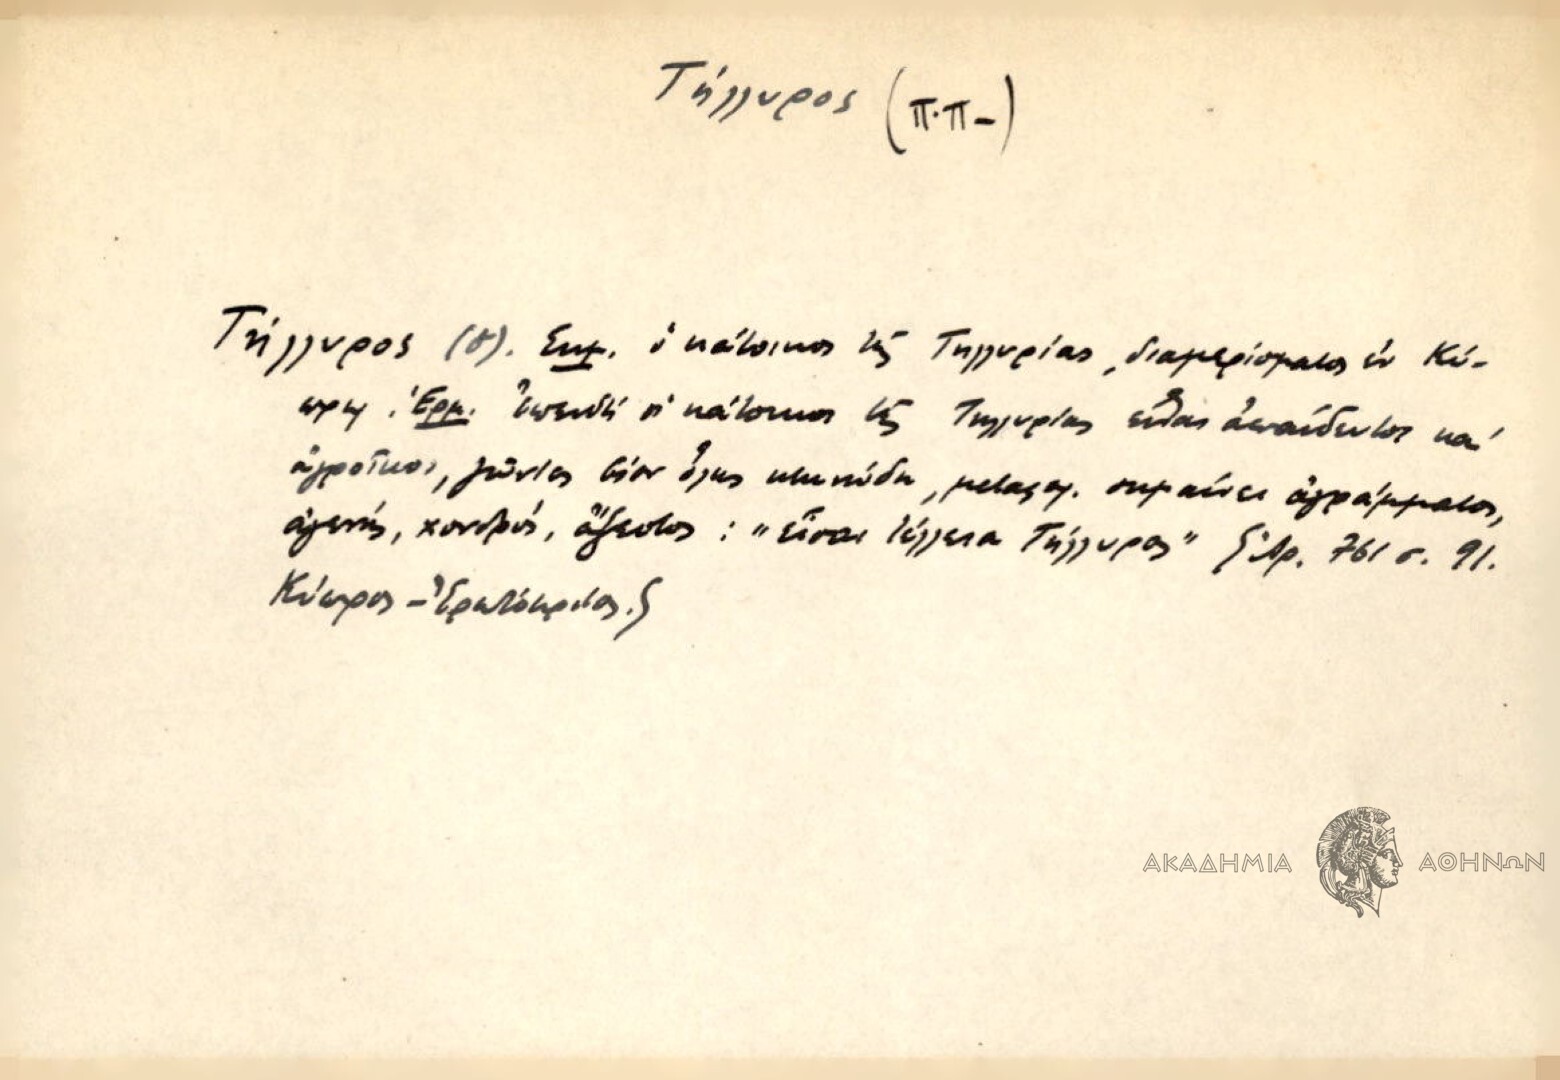 Τήλλυρος (π.π-)
Τήλλυρος (ὁ). Σημ. ὁ κάτοικος τῆς Τηλλυρίας, διαμερίσματος ἐν Κύ-
πρῳ. Ἑρμ. Ἐπειδή οἱ κάτοικοι τῆς Τηλλυρίας εἶναι ἀπαίδευτοι καί
ἀγροῖκοι, ζῶντες βίον ὅλως κτηνώδη, μεταφ. σημαίνει ἀγράμματος,
ἀγενής, χονδρός, ἄξεστος : "εἶσαι τέλλεια Τήλλυρος" ξ Ἀρ. 761 σ. 91.
Κύπρος – Ἐρωτόκριτος.ξ
ΑΚΑΔΗΜΙΑ ΑΘΗΝΩΝ